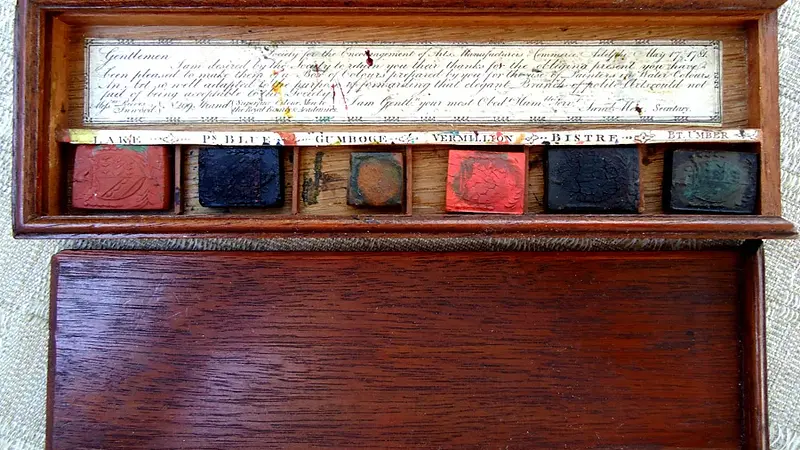 Gentlemen. Society for the Encouragement of Arts, Manufactures & Commerce, May 17, 1781
I am desired by the Society to return you their thanks for the obliging present you have
been pleased to make them of a Box of Colours prepared by you for the use of Painters in Water Colours
An Art so well adapted to the purpose of forwarding that elegant Branch of polite Arts could not
fail of being acceptable to the Society
Strand Superfine Colour Men to I am Gentn. your most Obed. Hum.
the Royal Family Secretary
LAKE Ps BLUE GUMBOGE VERMILLION BISTRE BT. UMBER